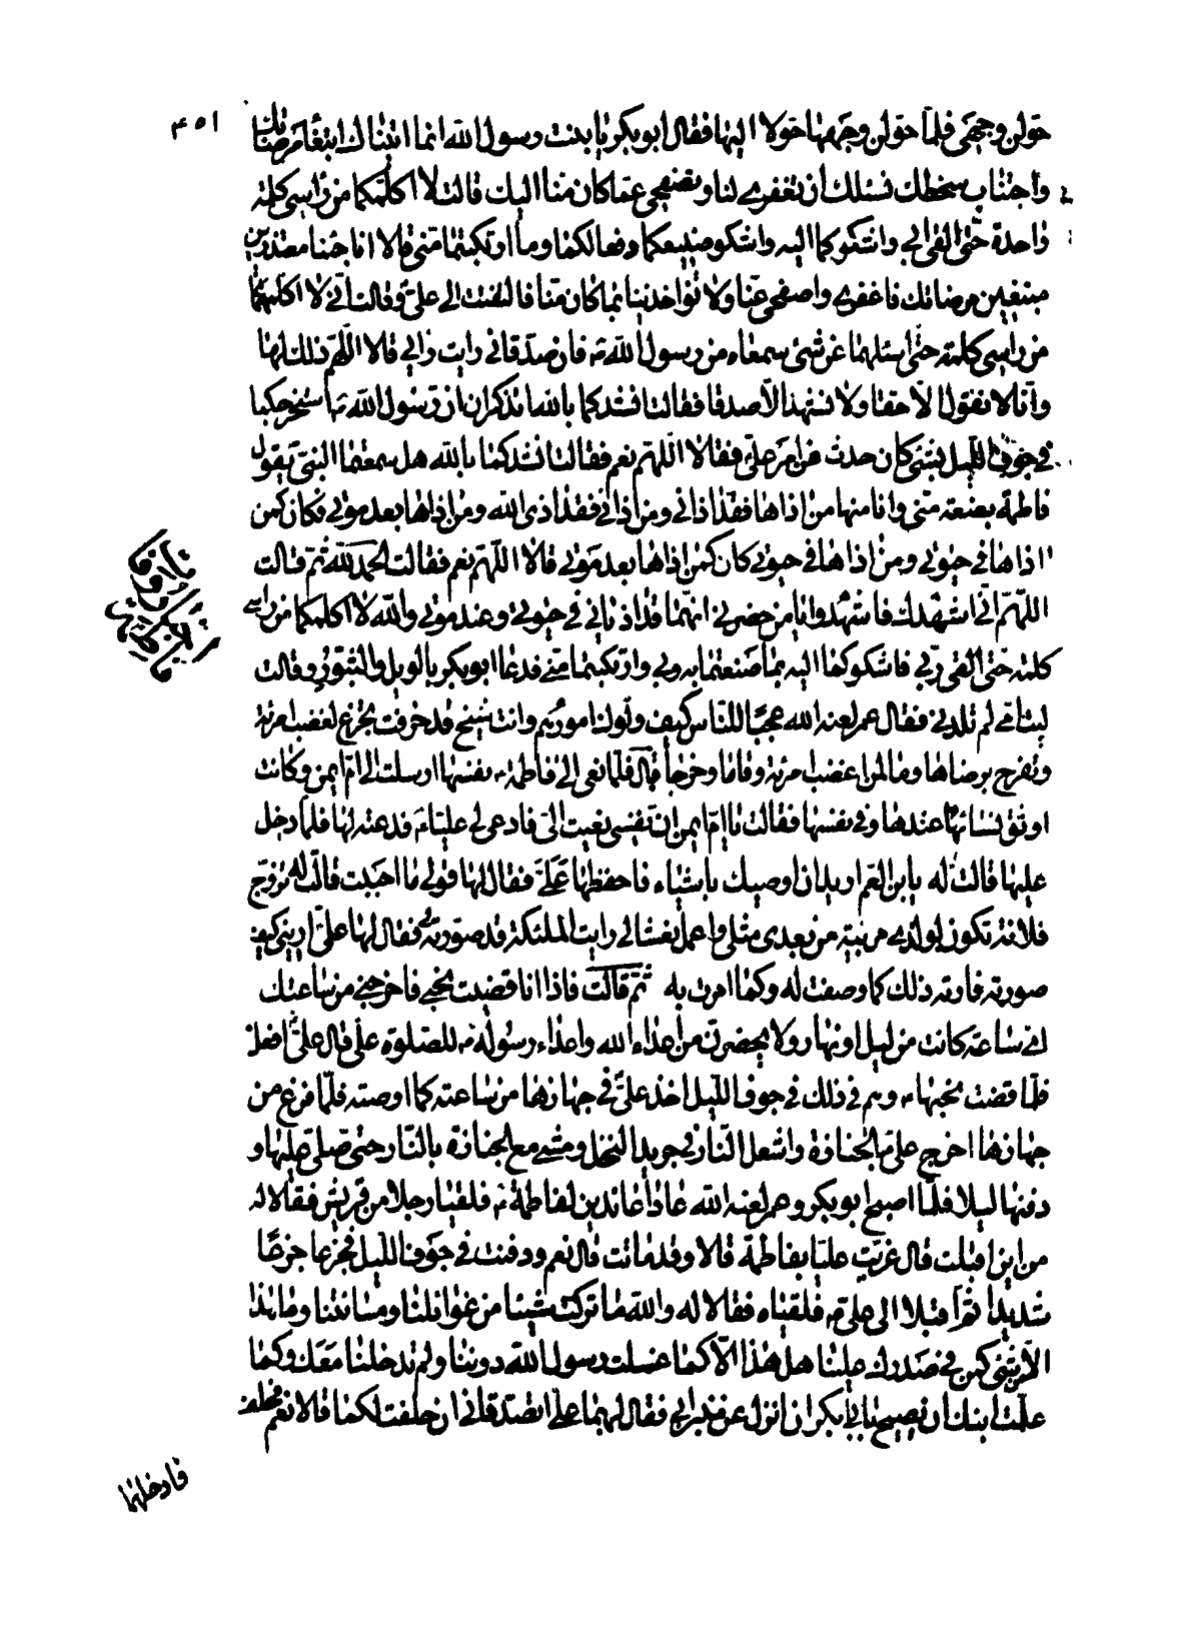 ۴۵۱
حولن وجهی فلما حولن وجهها حولا الیها فقال ابوبکر یا بنت رسول الله انما اتیناک ابتغاء مرضاتک
واجتناب سخطک نسئلک أن تغفری لنا وتصفحی عما کان منا الیک قالت لا اکلمکما من راسی کلمة
واحدة حتی القی ابی واشکوکما الیه واشکو صنیعکما وفعالکما وما ارتکبتما منی قالا انا جئنا معتذرین
مبتغین مرضاتک فاغفری واصفحی عنا ولا تؤاخذینا بما کان منا فالتفتت الی علی وقالت انی لا اکلمهما
من راسی کلمة حتی اسئلهما عن شئ سمعاه من رسول الله ص فان صدقانی رایت رایی قالا اللهم ذلک لها
وانا لا نقول الا حقا ولا نشهد الا صدقا فقالت انشدکما بالله اتذکران ان رسول الله ص استخرجکما
فی جوف اللیل بشئ کان حدث من امر علی فقالا اللهم نعم فقالت انشدکما بالله هل سمعتما النبی یقول
فاطمة بضعة منی وانا منها من اذاها فقد اذانی ومن اذانی فقد اذی الله ومن اذاها بعد موتی فکان کمن
اذاها فی حیوتی ومن اذاها فی حیوتی کان کمن اذاها بعد موتی قالا اللهم نعم فقالت الحمد لله ثم قالت
اللهم انی اشهدک فاشهدوا یا من حضرنی انهما قد اذیانی فی حیوتی وعند موتی والله لا اکلمکما من راسی
کلمة حتی القی ربی فاشکوکما الیه بما صنعتما به وبی وارتکبتما منی فدعا ابوبکر بالویل والثبور وقالت
لیت امی لم تلدنی فقال عمر لعنه الله عجبا للناس کیف ولوک امورهم وانت شیخ قد خرفت تجزع لغضب امرئة
وتفرح برضاها وما لمن اغضب امرئة وقاما وخرجا قال فلما نعی الی فاطمة ع نفسها ارسلت الی ام ایمن وکانت
اوثق نسائها عندها وفی نفسها فقالت یا ام ایمن ان نفسی نعیت الی فادعی لی علیا ع فدعته لها فلما دخل
علیها قالت له یا بن العم ارید ان اوصیک باشیاء فاحفظها علی فقال لها قولی ما احببت قالت له تزوج
فلانة تکون لولدی مربیة من بعدی مثلی واعمل نعشا لی رایت الملئکة قد صورته لی فقال لها علی ارینی کیف
صورته فارته ذلک کما وصفت له وکما امرت به ثم قالت فاذا انا قضیت نحبی فاخرجنی من ساعتک
ای ساعة کانت من لیل او نهار ولا یحضرن من اعداء الله واعداء رسوله ص للصلوة علی قال علی افعل
فلما قضت نحبها ع وهم فی ذلک فی جوف اللیل اخذ علی فی جهازها من ساعته کما اوصته فلما فرغ من
جهازها اخرج علی الجنازة واشعل النار فی جرید النخل ومشی مع الجنازة بالنار حتی صلی علیها و
دفنها لیلا فلما اصبح ابوبکر وعمر لعنه الله عاودا عائدین لفاطمة ع فلقیا رجلا من قریش فقالا له
من این اقبلت قال عزیت علیا بفاطمة قالا وقد ماتت قال نعم ودفنت فی جوف اللیل فجزعا جزعا
شدیدا ثم اقبلا الی علی ع فلقیاه فقالا له والله ما ترکت شیئا من غوائلنا ومسائتنا وما هذا
الا من شئ کمن فی صدرک علینا هل هذا الا کما غسلت رسول الله ص دوننا ولم تدخلنا معک وکما
علمت ابنک ان یصیح بابی بکر ان انزل عن منبر ابی فقال لهما علی اتصدقانی ان حلفت لکما قالا نعم فحلف
فادخلهما